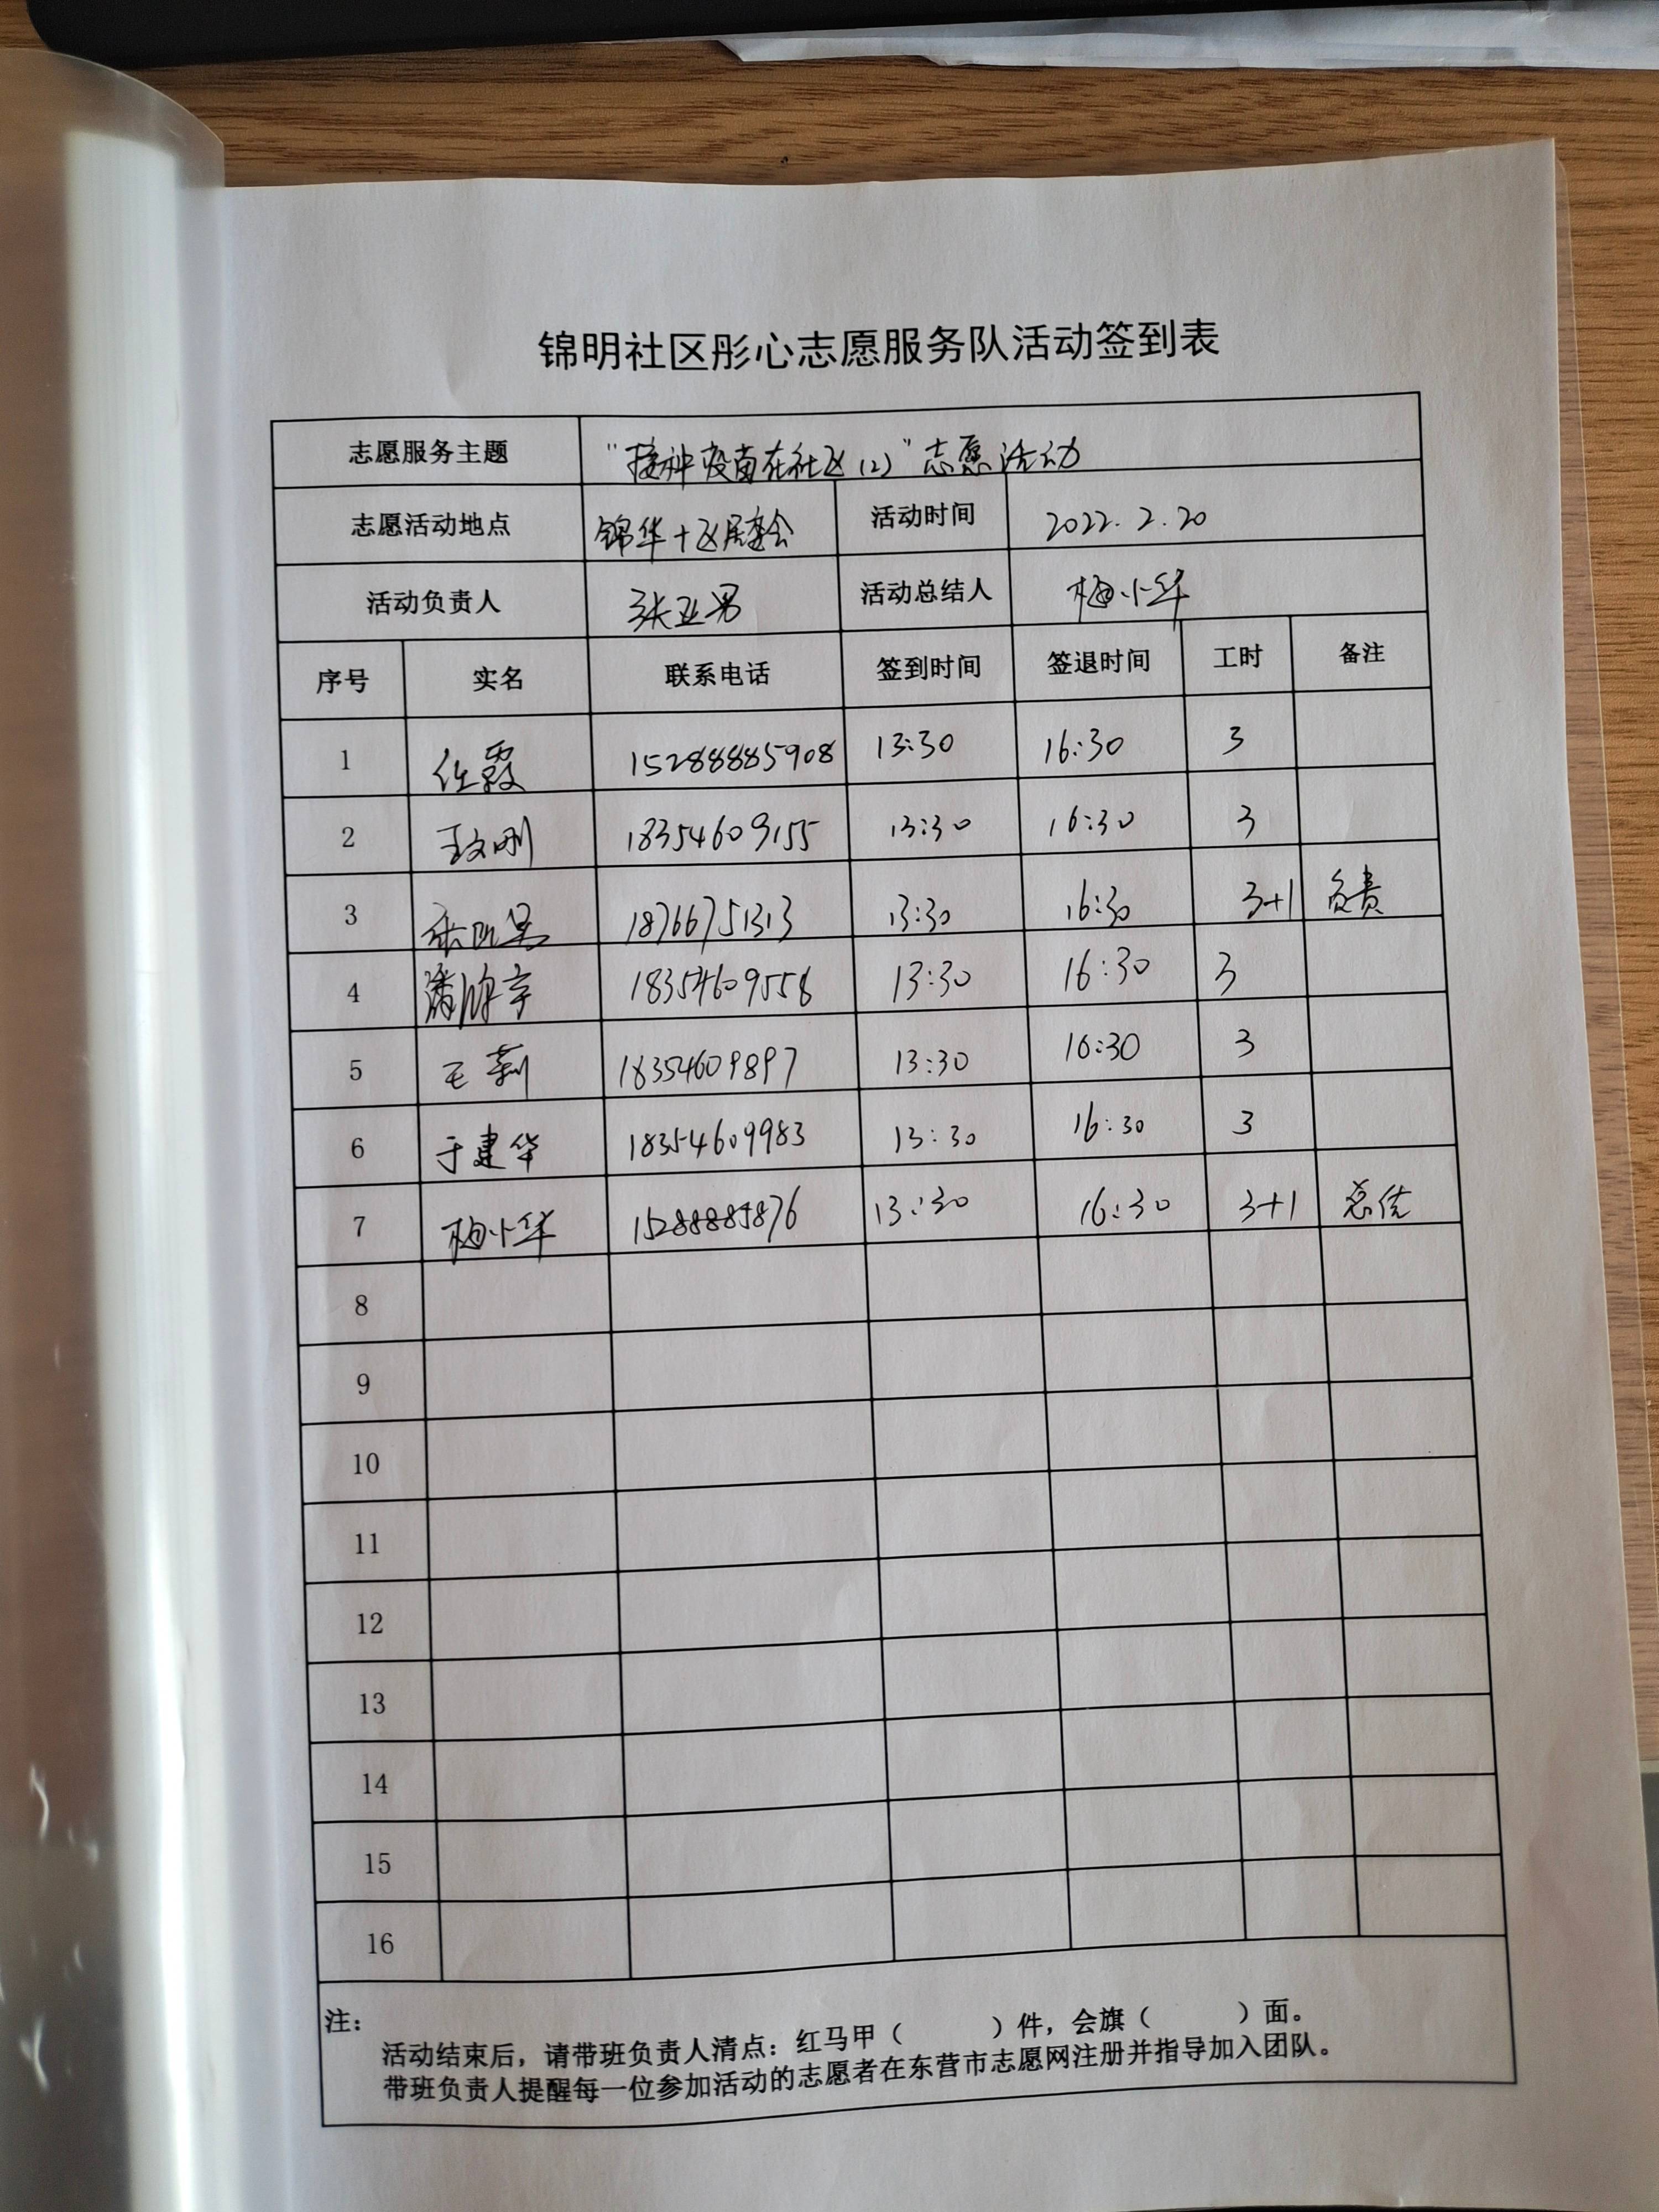 锦明社区彤心志愿服务队活动签到表
志愿服务主题 "接种疫苗在社区(2)"志愿活动
志愿活动地点 锦华十区居委会 活动时间 2022.2.20
活动负责人 张亚男 活动总结人 梅小华
序号 实名 联系电话 签到时间 签退时间 工时 备注
1 任霞 15288885908 13:30 16:30 3
2 王文刚 18354609155 13:30 16:30 3
3 18766751313 13:30 16:30 3+1 负责
4 18354609558 13:30 16:30 3
5 王莉 18354609897 13:30 16:30 3
6 于建华 18354609983 13:30 16:30 3
7 梅小华 15288885876 13:30 16:30 3+1 总结
8
9
10
11
12
13
14
15
16
注：
活动结束后，请带班负责人清点：红马甲（ ）件，会旗（ ）面。
带班负责人提醒每一位参加活动的志愿者在东营市志愿网注册并指导加入团队。